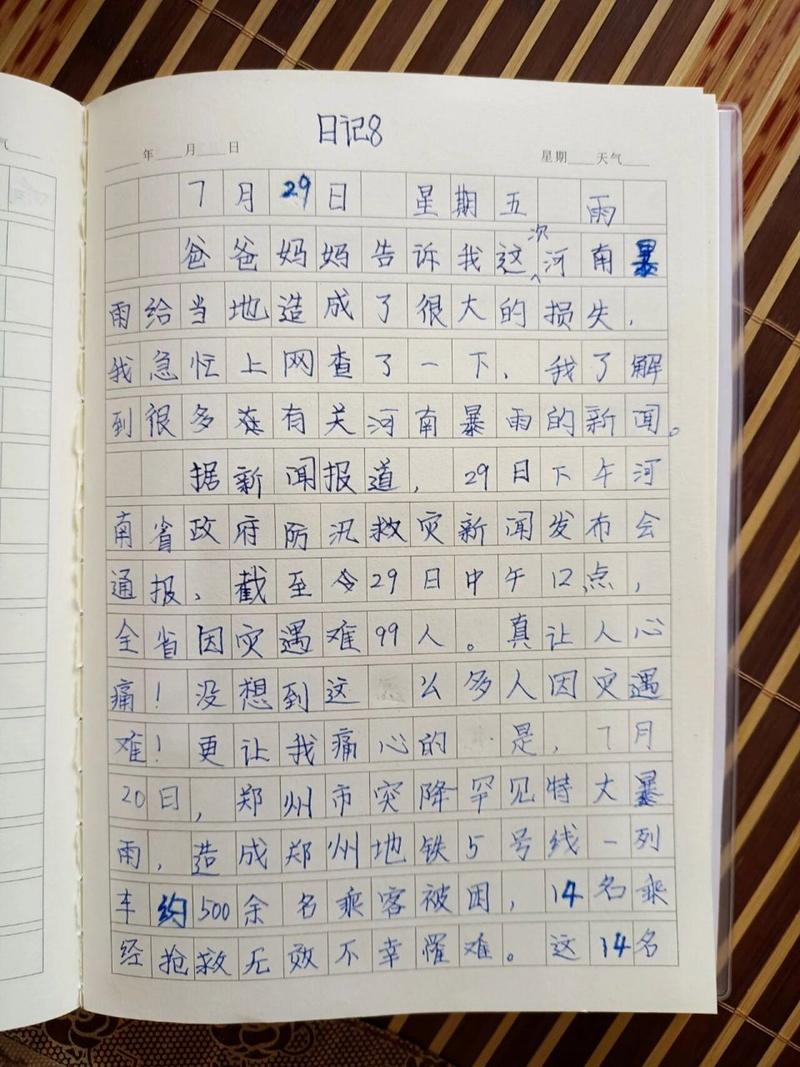 日记8
年 月 日 星期 天气
气
7月29日 星期五 雨
爸爸妈妈告诉我这次河南暴
雨给当地造成了很大的损失,
我急忙上网查了一下、我了解
到很多在有关河南暴雨的新闻。
据新闻报道,29日下午河
南省政府防汛救灾新闻发布会
通报、截至令29日中午12点,
全省因灾遇难99人。真让人心
痛!没想到这 么多人因灾遇
难!更让我痛心的 是,7月
20日,郑州市突降罕见特大暴
雨,造成郑州地铁5号线一列
车约500余名乘客被困,14名乘
经抢救无效不幸罹难。这14名